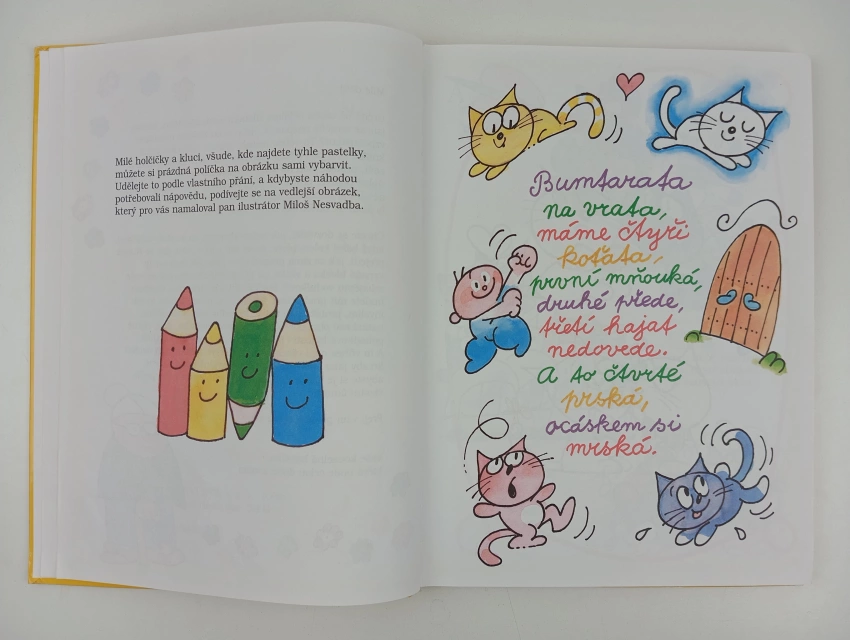 Milé holčičky a kluci, všude, kde najdete tyhle pastelky,
můžete si prázdná políčka na obrázku sami vybarvit.
Udělejte to podle vlastního přání, a kdybyste náhodou
potřebovali nápovědu, podívejte se na vedlejší obrázek,
který pro vás namaloval pan ilustrátor Miloš Nesvadba.
Bumtarata
na vrata,
máme čtyři
koťata,
první mňouká,
druhé přede,
třetí hajat
nedovede.
A to čtvrté
prská,
ocáskem si
mrská.